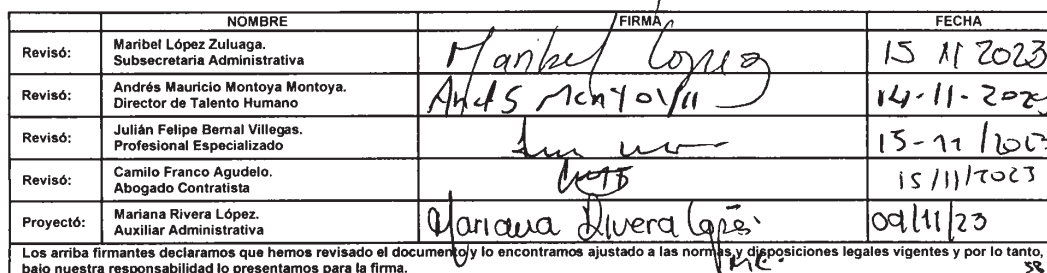 NOMBRE FIRMA FECHA
Revisó: Maribel López Zuluaga. Subsecretaria Administrativa Maribel López 15 11 2023
Revisó: Andrés Mauricio Montoya Montoya. Director de Talento Humano 14-11-2023
Revisó: Julián Felipe Bernal Villegas. Profesional Especializado 15-11/2023
Revisó: Camilo Franco Agudelo. Abogado Contratista 15/11/2023
Proyectó: Mariana Rivera López. Auxiliar Administrativa Mariana Rivera López. 09/11/23
Los arriba firmantes declaramos que hemos revisado el documento y lo encontramos ajustado a las normas y disposiciones legales vigentes y por lo tanto,
bajo nuestra responsabilidad lo presentamos para la firma.